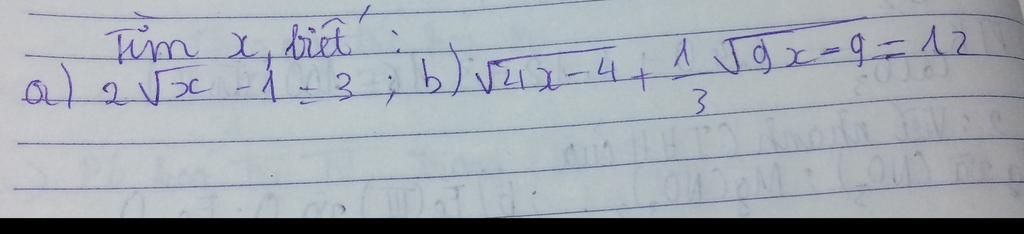 Tìm x, biết :
a) 2√x - 1 = 3 ; b) √4x-4 + 1/3 √9x-9 = 12